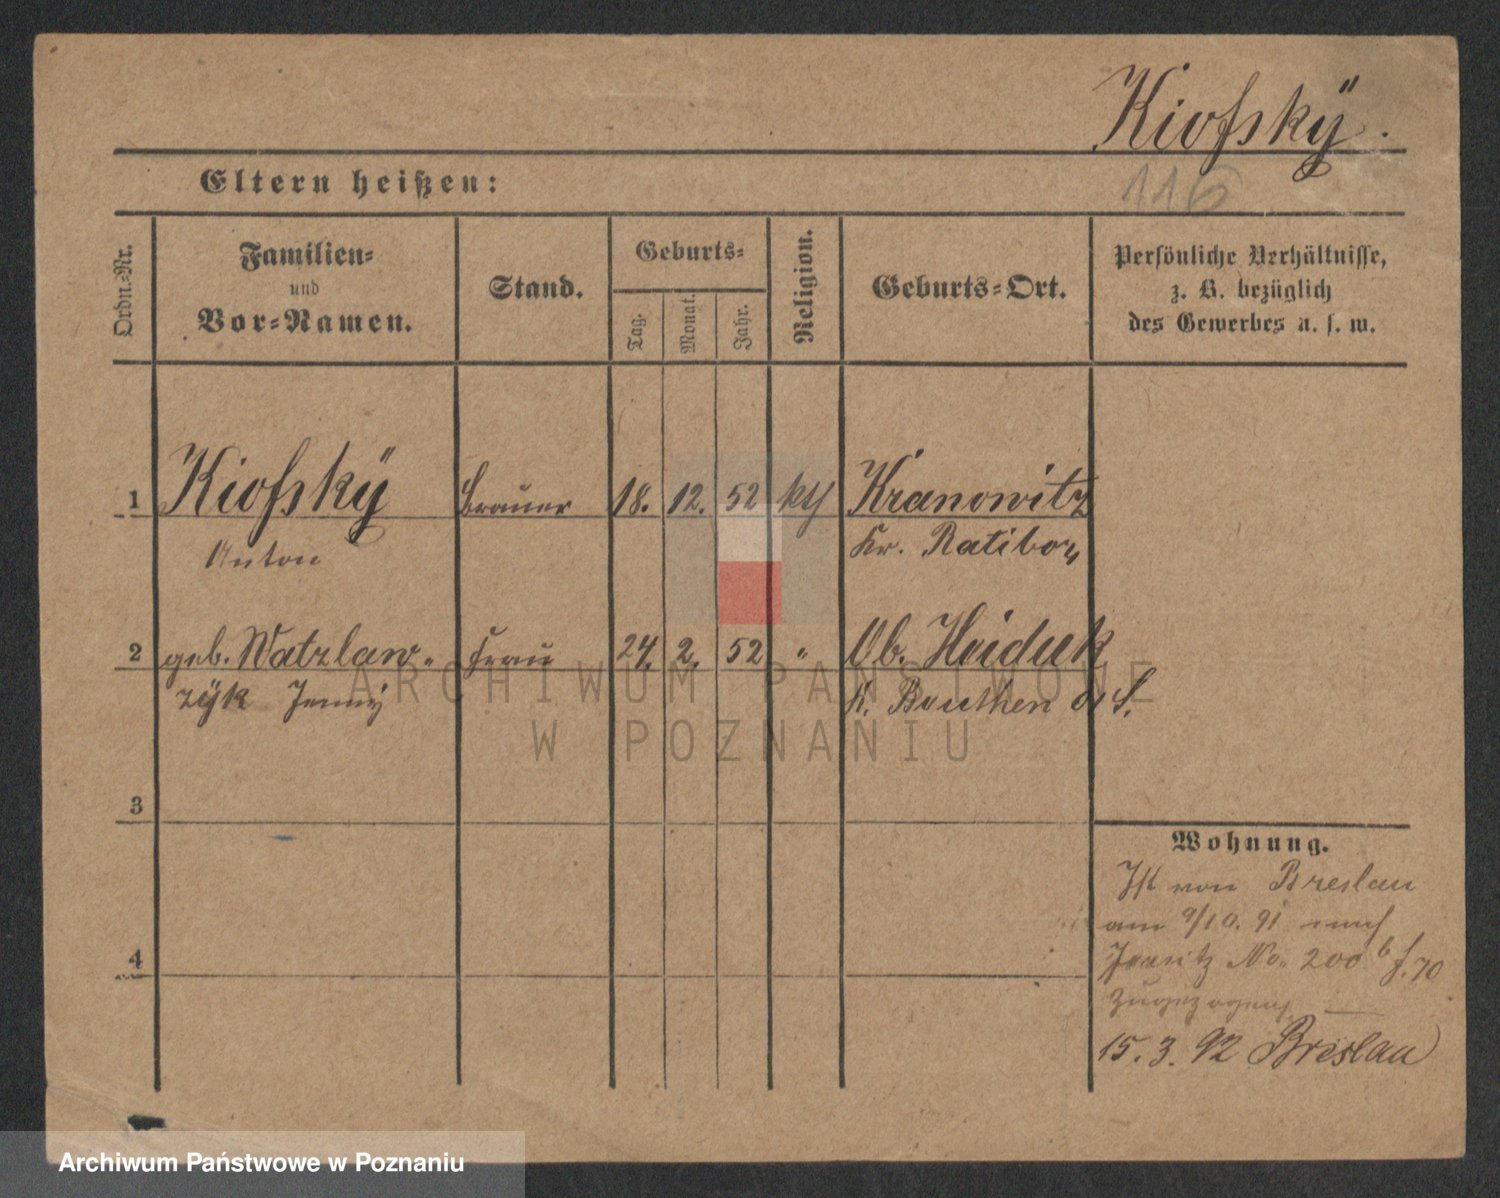 Kiofskÿ.
Eltern heißen:
116
Ordn.-Nr.
Familien-
und
Vor-Namen.
Stand.
Geburts-
Tag.
Monat.
Jahr.
Religion.
Geburts-Ort.
Persönliche Verhältnisse,
z. B. bezüglich
des Gewerbes u. s. w.
1 Kiofskÿ Brauer 18. 12. 52 kth Kranowitz
Anton Kr. Ratibor
2 geb. Watzlaw- Frau 24. 2. 52 " Ob. Heiduk
zÿk Jenny K. Beuthen O/S.
3
Wohnung.
Ist von Breslau
am 9/10. 91 nach
4
Jersitz No. 200 b f. 70
zugezogen
15. 3. 92 Breslau
ARCHIWUM PAŃSTWOWE
W POZNANIU
Archiwum Państwowe w Poznaniu